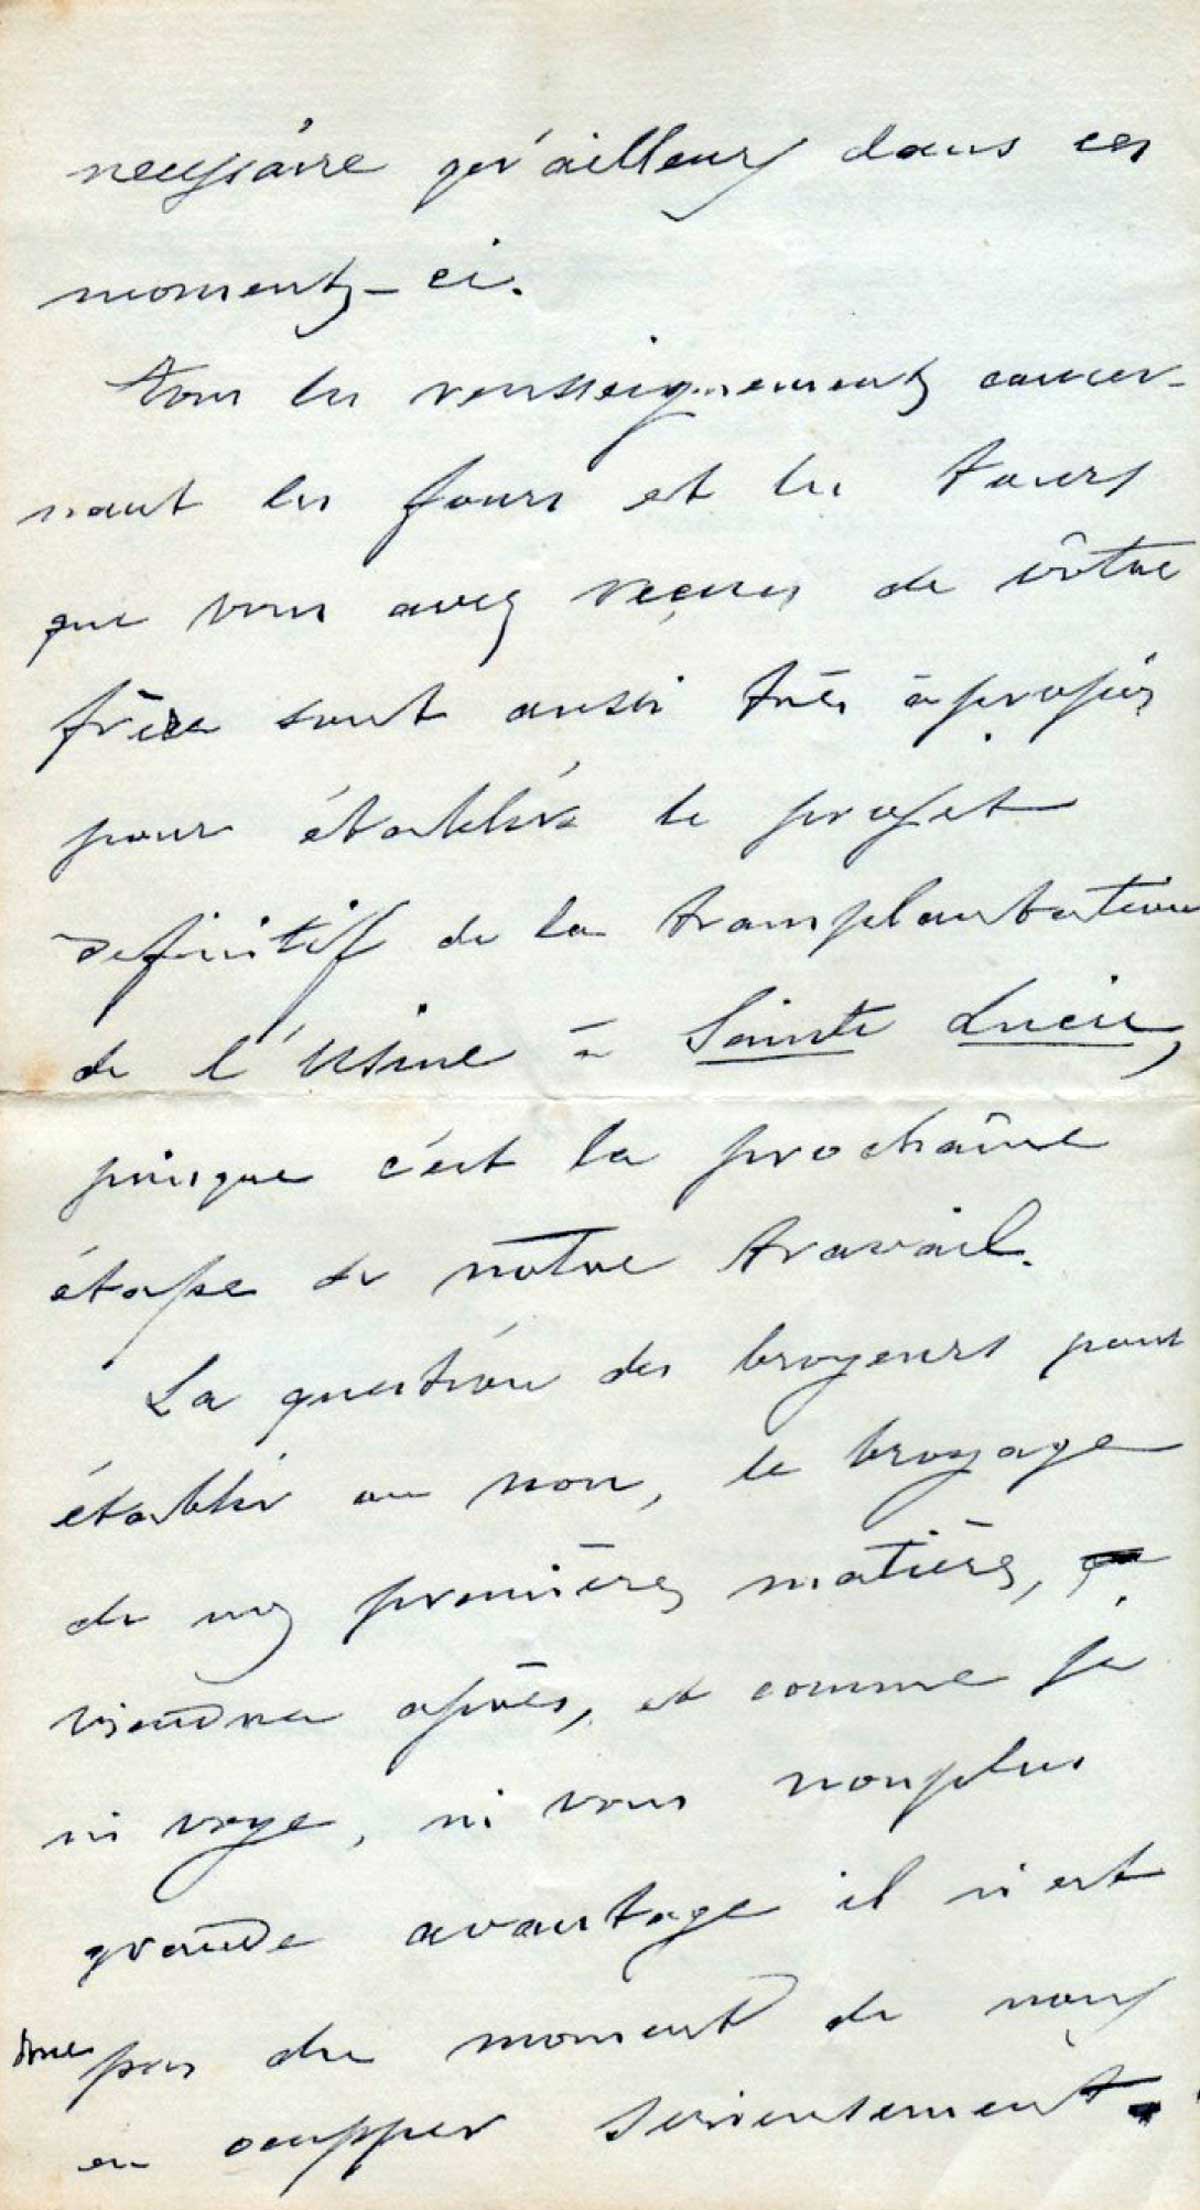 necessaire qu'ailleurs dans ces
moments-ci.
Tous les renseignements concer-
nant les fours et les tours
que vous avez reçues de vôtre
frère sont aussi très àpropós
pour établir le projet
definitif de la transplantation
de l'Usine à Sainte Lucie,
puisque c'est la prochaîne
étape de notre travail.
La question des broyeurs pour
établir ou non, le broyage
de nos premières matières,
viendra après, et comme je
ni voye, ni vous nonplus
grande avantage il n'est
donc pas du moment de nous
en ocupper serieusement.